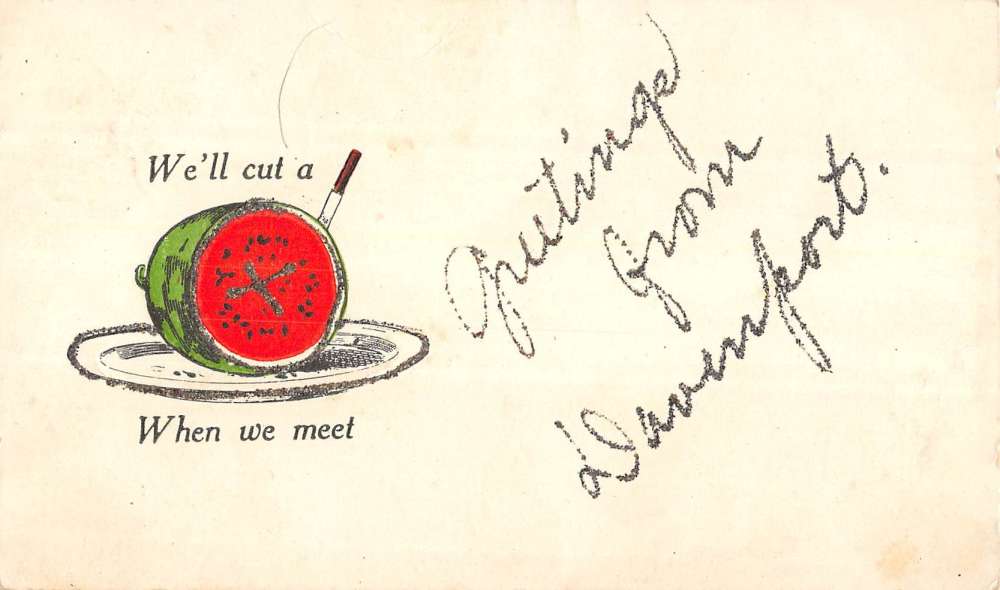 We'll cut a
When we meet
Greetings
from
Davenport.